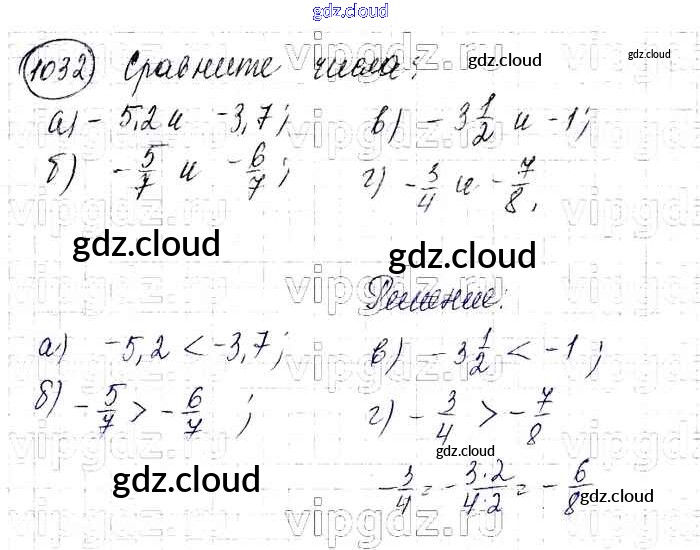 gdz.cloud
1032) Сравните числа:
gdz.cloud
gdz.cloud
а) - 5,2 и -3,7; в) - 3 1/2 и -1;
б) - 5/7 и - 6/7; г) - 3/4 и - 7/8.
gdz.cloud gdz.cloud
Решение:
а) -5,2 < -3,7; в) - 3 1/2 < -1;
б) - 5/7 > - 6/7; г) - 3/4 > - 7/8
gdz.cloud
- 3/4 = - 3·2/4·2 = - 6/8
gdz.cloud gdz.cloud
vipgdz.ru